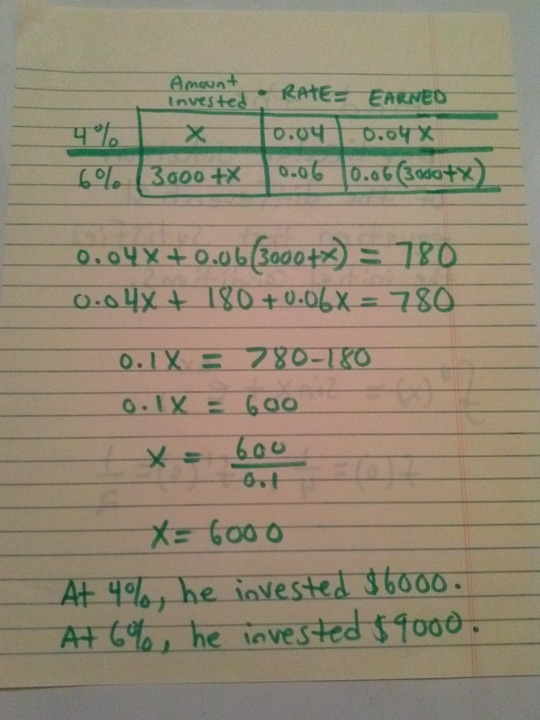 Amount
invested • RATE = EARNED
4% X 0.04 0.04X
6% 3000+X 0.06 0.06(3000+X)
0.04X + 0.06(3000+X) = 780
0.04X + 180 + 0.06X = 780
0.1X = 780-180
0.1X = 600
X = 600/0.1
X = 6000
At 4%, he invested $6000.
At 6%, he invested $9000.